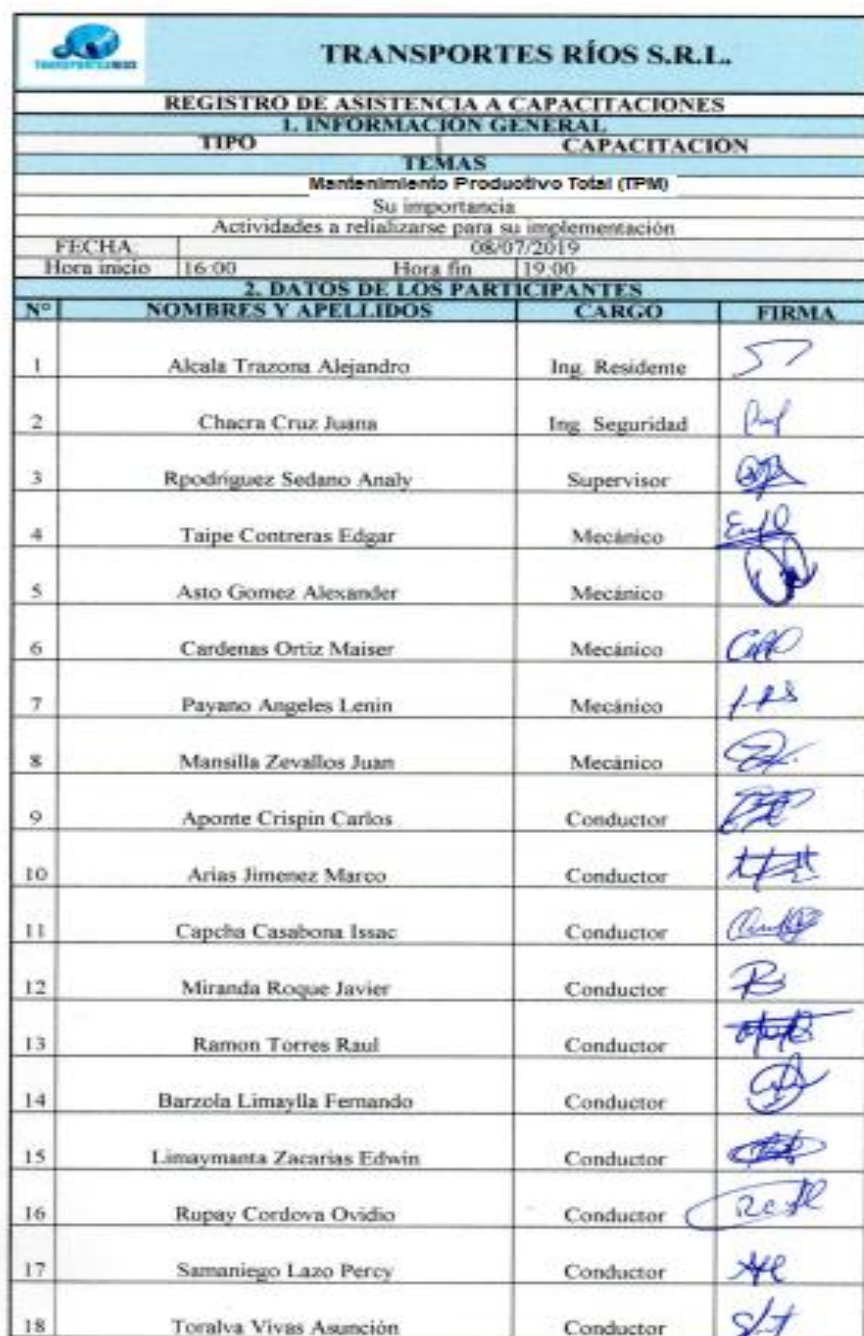 TRANSPORTES RÍOS
TRANSPORTES RÍOS S.R.L.
REGISTRO DE ASISTENCIA A CAPACITACIONES
1. INFORMACION GENERAL
TIPO CAPACITACIÓN
TEMAS
Mantenimiento Productivo Total (TPM)
Su importancia
Actividades a relializarse para su implementación
FECHA 08/07/2019
Hora inicio 16:00 Hora fin 19:00
2. DATOS DE LOS PARTICIPANTES
N° NOMBRES Y APELLIDOS CARGO FIRMA
1 Alcala Trazona Alejandro Ing. Residente
2 Chacra Cruz Juana Ing. Seguridad
3 Rpodríguez Sedano Analy Supervisor
4 Taipe Contreras Edgar Mecánico
5 Asto Gomez Alexander Mecánico
6 Cardenas Ortiz Maiser Mecánico
7 Payano Angeles Lenin Mecánico
8 Mansilla Zevallos Juan Mecánico
9 Aponte Crispin Carlos Conductor
10 Arias Jimenez Marco Conductor
11 Capcha Casabona Issac Conductor
12 Miranda Roque Javier Conductor
13 Ramon Torres Raul Conductor
14 Barzola Limaylla Fernando Conductor
15 Limaymanta Zacarias Edwin Conductor
16 Rupay Cordova Ovidio Conductor
17 Samaniego Lazo Percy Conductor
18 Toralva Vivas Asunción Conductor